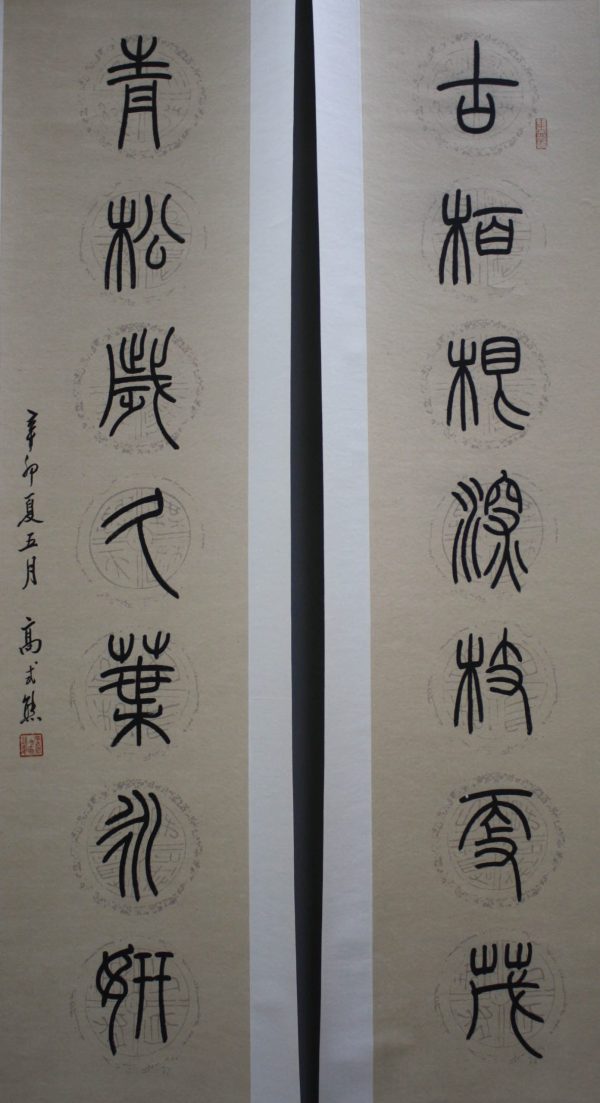 古栢根深枝更茂
青松歲久葉永妍
辛卯夏五月 高式熊